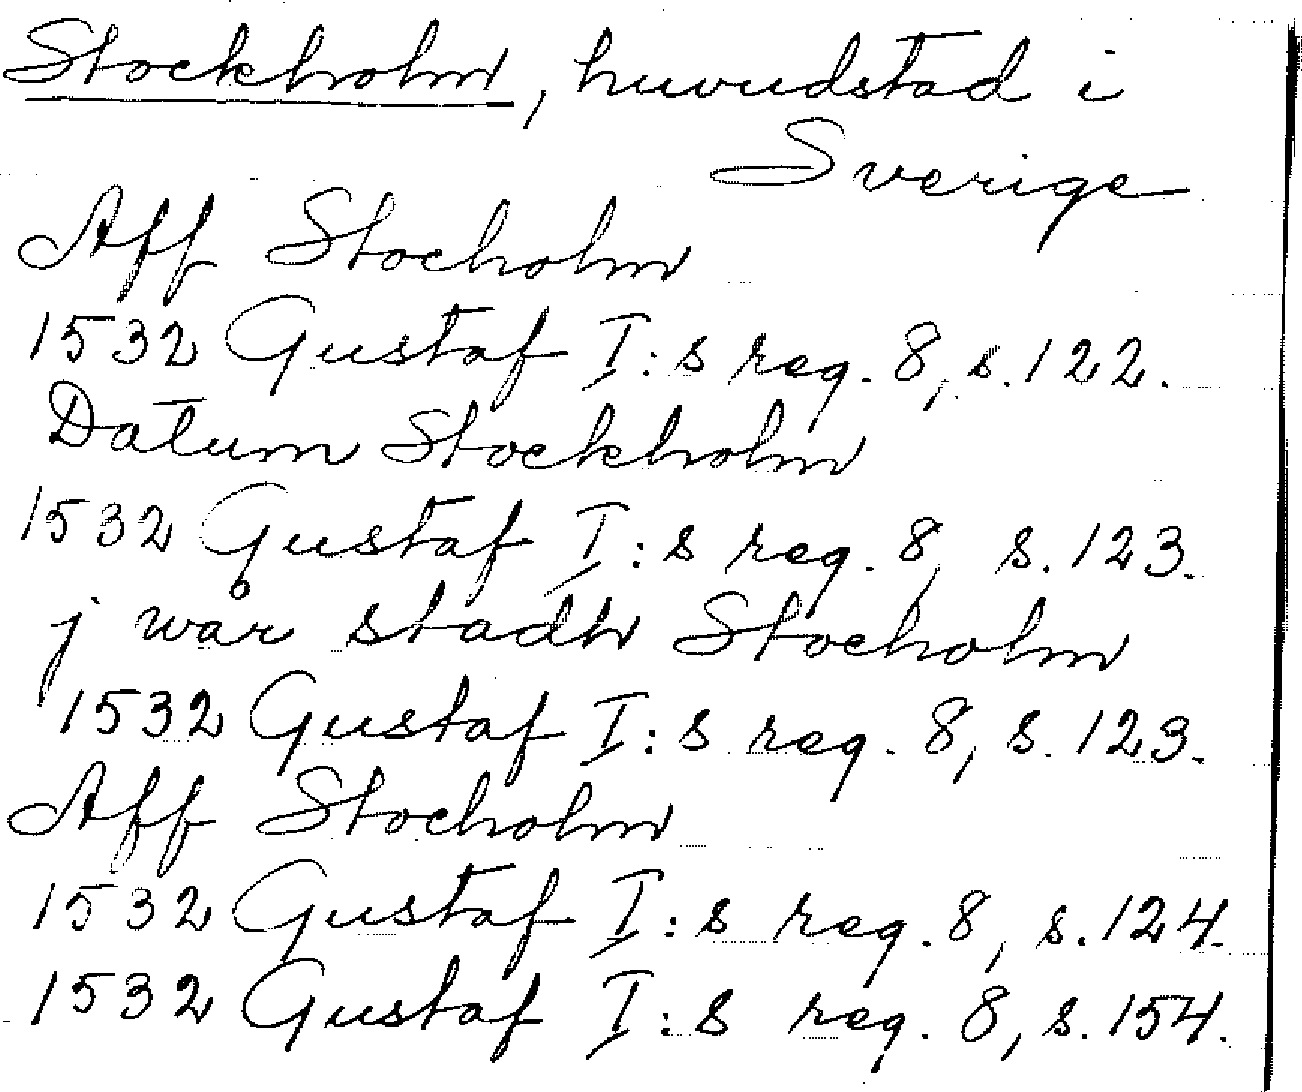 Stockholm, huvudstad i
Sverige
Aff Stocholm
1532 Gustaf I:s reg. 8, s. 122.
Datum Stockholm
1532 Gustaf I:s reg. 8, s. 123.
j wår stadh Stocholm
1532 Gustaf I:s reg. 8, s. 123.
Aff Stocholm
1532 Gustaf I:s reg. 8, s. 124.
1532 Gustaf I:s reg. 8, s. 154.